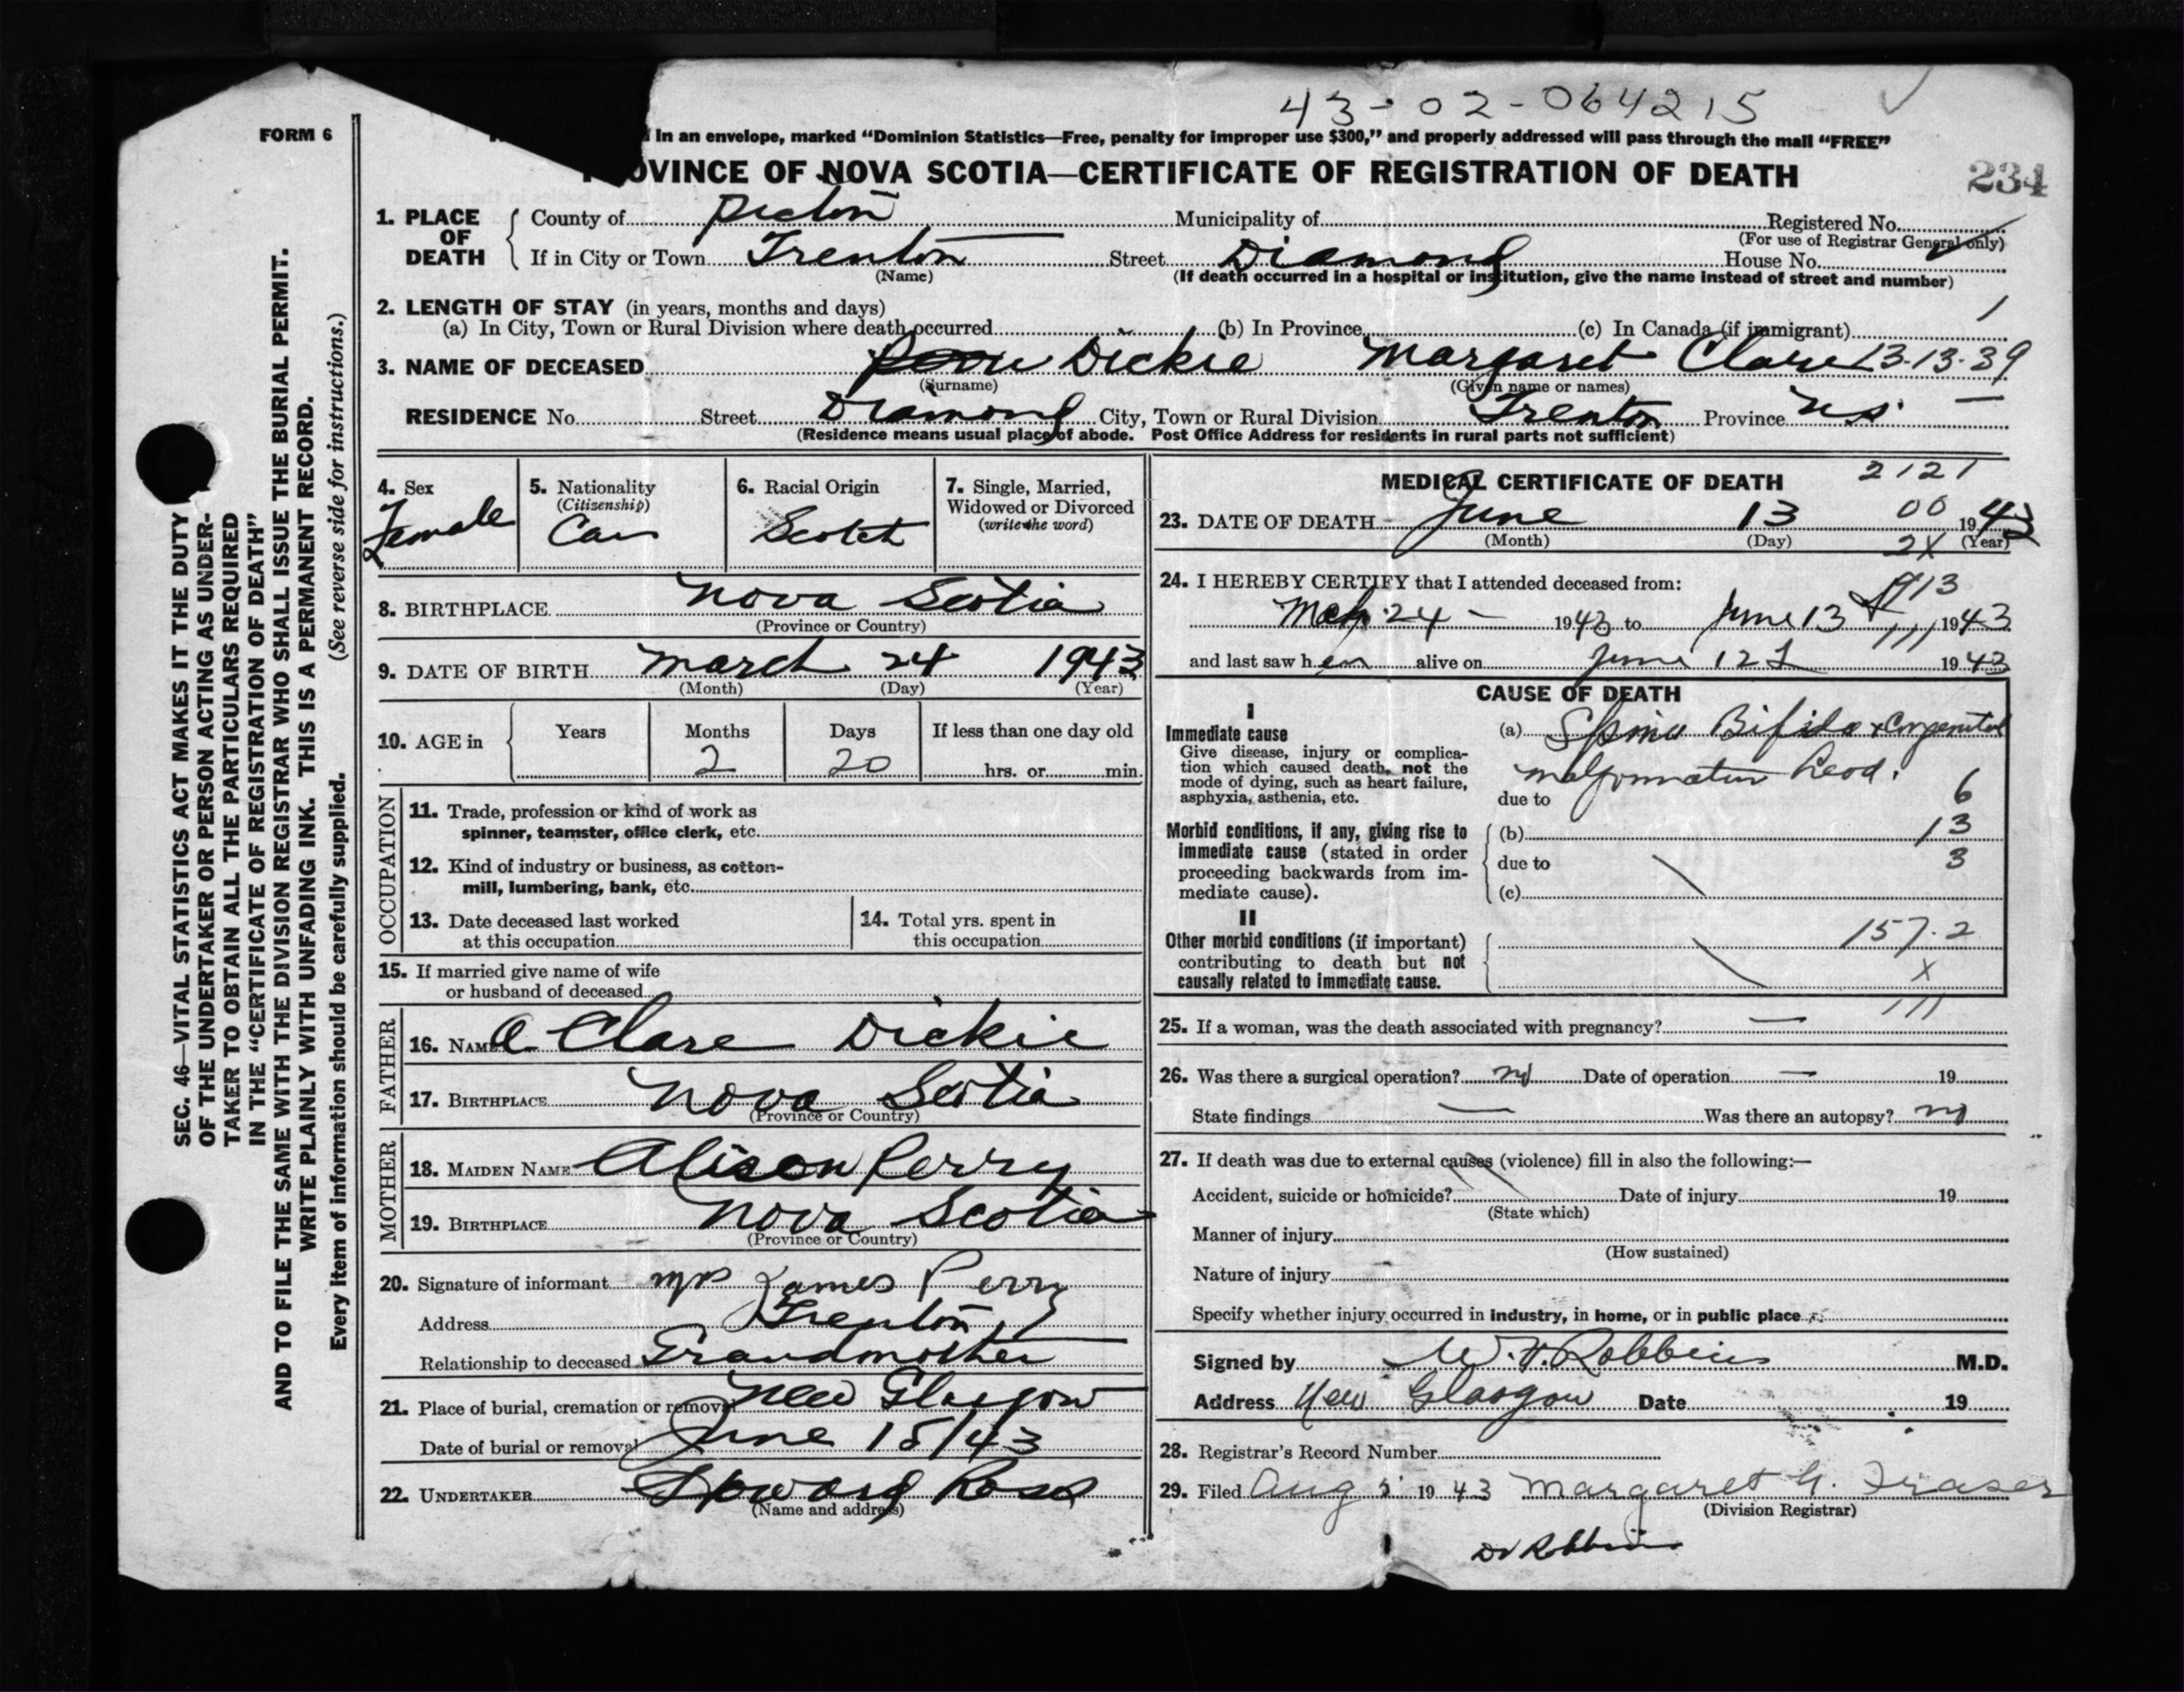 43-02-064215
FORM 6
in an envelope, marked “Dominion Statistics—Free, penalty for improper use $300,” and properly addressed will pass through the mail “FREE”
OVINCE OF NOVA SCOTIA—CERTIFICATE OF REGISTRATION OF DEATH
234
1. PLACE OF DEATH { County of Pictou Municipality of Registered No.
(For use of Registrar General only)
If in City or Town Trenton Street Diamond House No.
(Name) (If death occurred in a hospital or institution, give the name instead of street and number)
2. LENGTH OF STAY (in years, months and days) 1
(a) In City, Town or Rural Division where death occurred (b) In Province (c) In Canada (if immigrant)
3. NAME OF DECEASED Dickie Margaret Clare 13-13-39
(Surname) (Given name or names)
RESIDENCE No. Street Diamond City, Town or Rural Division Trenton Province N.S. —
(Residence means usual place of abode. Post Office Address for residents in rural parts not sufficient)
4. Sex
Female
5. Nationality
(Citizenship)
Can
6. Racial Origin
Scotch
7. Single, Married,
Widowed or Divorced
(write the word)
8. BIRTHPLACE Nova Scotia
(Province or Country)
9. DATE OF BIRTH March 24 1943
(Month) (Day) (Year)
10. AGE in { Years Months Days If less than one day old
2 20 hrs. or min.
OCCUPATION
11. Trade, profession or kind of work as
spinner, teamster, office clerk, etc.
12. Kind of industry or business, as cotton-
mill, lumbering, bank, etc.
13. Date deceased last worked
at this occupation
14. Total yrs. spent in
this occupation
15. If married give name of wife
or husband of deceased
FATHER
16. NAME A Clare Dickie
17. BIRTHPLACE Nova Scotia
(Province or Country)
MOTHER
18. MAIDEN NAME Alison Perry
19. BIRTHPLACE Nova Scotia
(Province or Country)
20. Signature of informant Mrs James Perry
Address Trenton
Relationship to deceased Grandmother
21. Place of burial, cremation or removal New Glasgow
Date of burial or removal June 15/43
22. UNDERTAKER Ross
(Name and address)
MEDICAL CERTIFICATE OF DEATH 2121
00
23. DATE OF DEATH June 13 1943
(Month) (Day) 2X (Year)
24. I HEREBY CERTIFY that I attended deceased from:
Mch 24 — 1943 to June 13 1943
and last saw her alive on June 12 1943
CAUSE OF DEATH
I
Immediate cause
Give disease, injury or complica-
tion which caused death, not the
mode of dying, such as heart failure,
asphyxia, asthenia, etc.
(a) Spina Bifida & Congenital
malformation head.
6
due to
Morbid conditions, if any, giving rise to
immediate cause (stated in order
proceeding backwards from im-
mediate cause).
(b) 13
due to 3
(c)
II
Other morbid conditions (if important)
contributing to death but not
causally related to immediate cause.
157.2
X
111
25. If a woman, was the death associated with pregnancy? —
26. Was there a surgical operation? no Date of operation — 19
State findings — Was there an autopsy? no
27. If death was due to external causes (violence) fill in also the following:—
Accident, suicide or homicide? Date of injury 19
(State which)
Manner of injury
(How sustained)
Nature of injury
Specify whether injury occurred in industry, in home, or in public place
Signed by W. H. Robbins M.D.
Address New Glasgow Date 19
28. Registrar's Record Number
29. Filed Aug 1943 Margaret G. Fraser
(Division Registrar)
Dr Robbins
SEC. 46—VITAL STATISTICS ACT MAKES IT THE DUTY
OF THE UNDERTAKER OR PERSON ACTING AS UNDER-
TAKER TO OBTAIN ALL THE PARTICULARS REQUIRED
IN THE “CERTIFICATE OF REGISTRATION OF DEATH”
AND TO FILE THE SAME WITH THE DIVISION REGISTRAR WHO SHALL ISSUE THE BURIAL PERMIT.
WRITE PLAINLY WITH UNFADING INK. THIS IS A PERMANENT RECORD.
Every item of information should be carefully supplied. (See reverse side for instructions.)